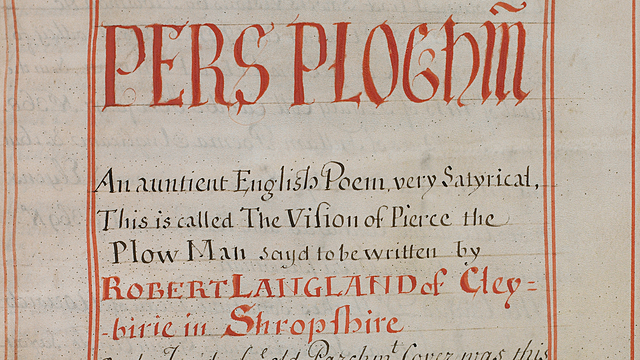 PERS PLOGhm̃
An auntient English Poem, very Satyrical,
This is called The Vision of Pierce the
Plow Man sayd to be written by
ROBERT LANGLAND of Cley=
-birie in Shropshire
Parchmt Cover was this